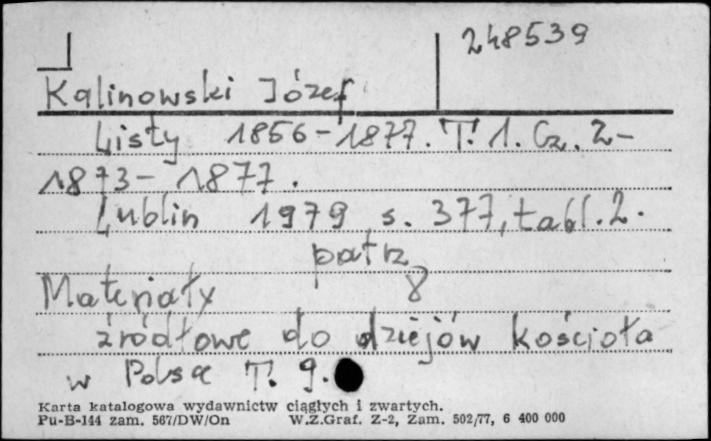 248539
Kalinowski Józef
Listy 1856-1877. T. 1. Cz. 2-
1873-1877.
Lublin 1979 s. 377, tabl. 2.
patrz
Materiały 8
źródłowe do dziejów kościoła
w Polsce T. 9.
Karta katalogowa wydawnictw ciągłych i zwartych.
Pu-B-144 zam. 567/DW/On W.Z.Graf. Z-2, Zam. 502/77, 6 400 000